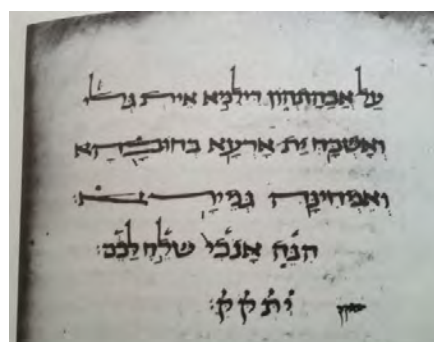 עַל אֲבָהָתְהוֹן דילמא אית גלי
וְאַשְׁכַּח יַת אָרְעָא בחובהא
וְאִמְחִינָהּ גְמִירָא׃
הִנֵּה אָנֹכִי שֹׁלֵחַ לָכֶם׃
יתקק׃